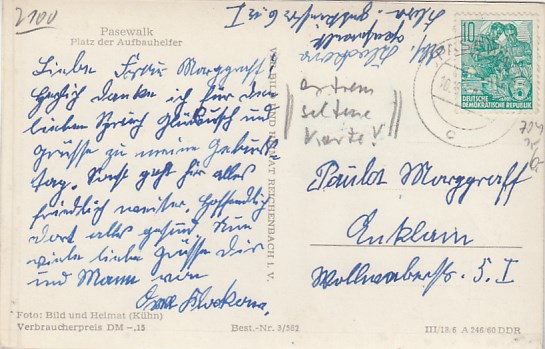 2100
Pasewalk
Platz der Aufbauhelfer
Liebe Marggraff
Herzlich danke ich für den
lieben Spruch Glückwunsch und
Grüsse zu meinem Geburts
tag. Sonst geht für alles
friedlich weiter. Hoffentlich
dort alles gesund. Nun
viele liebe Grüsse Dir
und Mann von
Foto: Bild und Heimat (Kühn)
Verbraucherpreis DM -.15
Best.-Nr. 3/582
VERLAG BILD UND HEIMAT REICHENBACH I. V.
Abs.
Pasewalk
10
DEUTSCHE
DEMOKRATISCHE REPUBLIK
extrem
seltene
Karte!
Marggraff
Anklam
Wollweberstr. 5. I
III/18/6 A 246/60 DDR